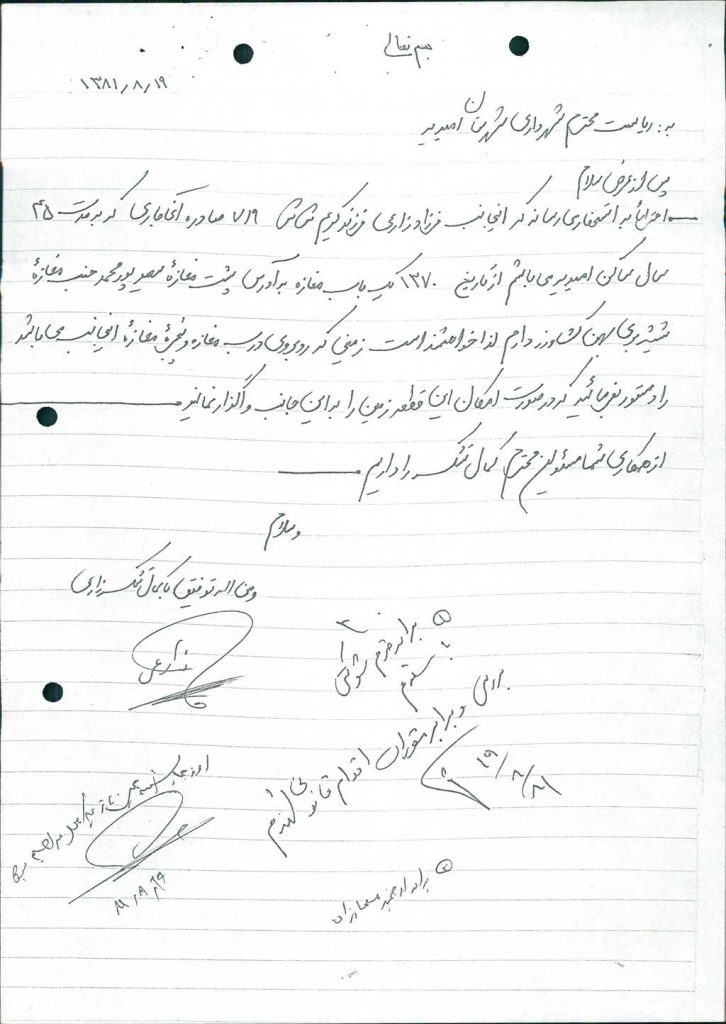 بسم تعالی
۱۳۸۱/۸/۱۹
به: ریاست محترم شهرداری شهرستان امیدیه
پس از عرض سلام
احتراماً به استحضار می رساند که اینجانب فرزاد زارعی فرزند کریم ش ش ۷۱۹ صادره آغاجاری که به مدت ۲۵
سال ساکن امیدیه می باشم از تاریخ ۱۳۷۰ یک باب مغازه به آدرس پشت مغازه پور محمد جنب مغازهٔ
شیشه بری بهمن کشاورز دارم لذا خواهشمند است زمینی که روبروی درب مغازه و پنجرهٔ مغازهٔ اینجانب می باشد
را دستور بفرمائید که در صورت امکان این قطعه زمین را به این جانب واگذار نمائید
از همکاری شما مسئولین محترم کمال تشکر را داریم
والسلام
و من اله توفیق با کمال تشکر زارعی
زارعی
۱ برادر محترم
با سلام
بررسی و برابر مقررات اقدام قانونی لازم
۱۹/۸/۸۱
۲ برادر ارجمند